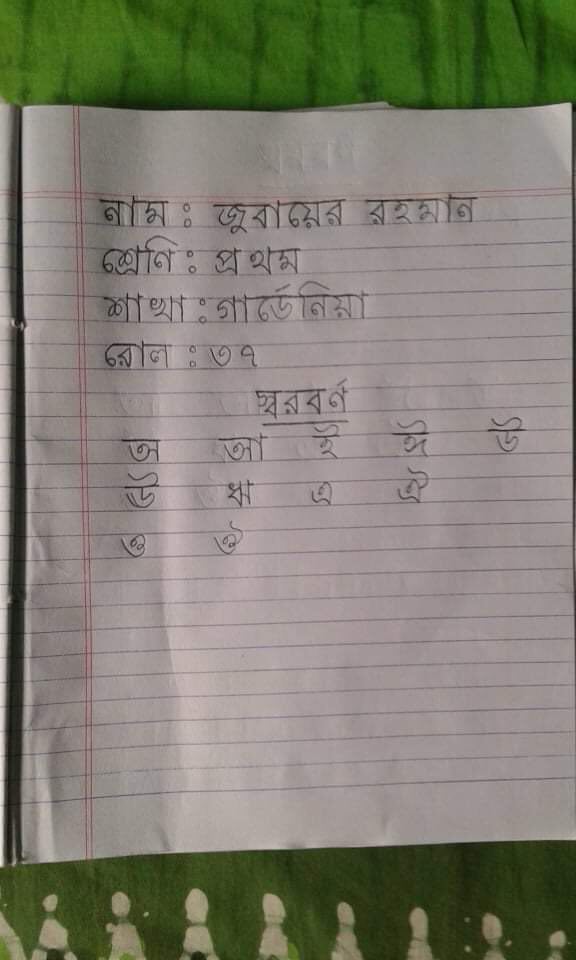 নাম : জুবায়ের রহমান
শ্রেনি : প্রথম
শাখা : গার্ডেনিয়া
রোল : ৩৭
স্বরবর্ন
অ আ ই ঈ উ
ঊ ঋ এ ঐ
ও ঔ